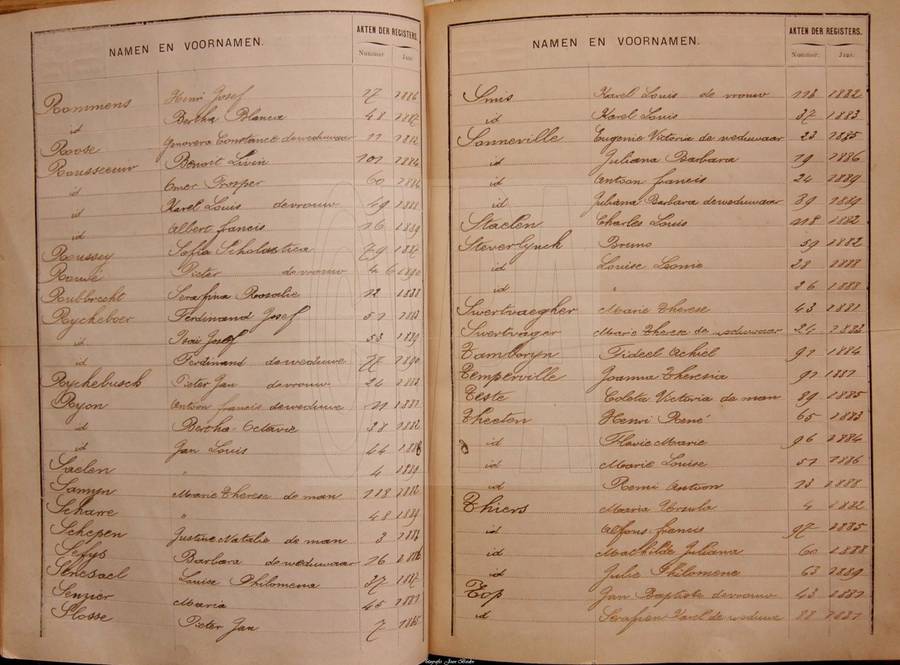 NAMEN EN VOORNAMEN. AKTEN DER REGISTERS.
Nummer Jaar
Rommens Henri Josef 17 1886
id Bertha Blanca 48 1887
Roose Genovera Constance de weduwaar 11 1882
Rousseeuw Benoit Livin 101 1884
id Omer Prosper 60 1886
id Karel Louis de vrouw 49 1888
id Albert francis 16 1889
Roussey Sofia Scholastica 79 1887
Rouwé Pieter de vrouw 46 1890
Rubbrecht Serafina Rosalie 12 1888
Rycheboer Ferdinand Josef 51 1883
id Isaï Josef 53 1889
id Ferdinand de weduwe 77 1890
Rychebusch Pieter Jan de vrouw 26 1883
Ryon Antoon francis de weduwe 11 1882
id Bertha Octavie 38 1882
id Jan Louis 44 1886
Saelen " 4 1889
Samyn Marie Therese de man 118 1882
Scharre " 48 1889
Schepen Justine Natalie de man 3 1886
Seffys Barbara de weduwaar 16 1886
Senesael Louise Philomena 37 1887
Senzier Maria 45 1883
Slosse Pieter Jan 7 1885
NAMEN EN VOORNAMEN. AKTEN DER REGISTERS.
Nummer Jaar
Smis Karel Louis de vrouw 113 1882
id Karel Louis 37 1883
Sonneville Eugenie Victoria de weduwaar 23 1885
id Juliana Barbara 19 1886
id Antoon francis 24 1889
id Juliana Barbara de weduwaar 39 1889
Staelen Charles Louis 118 1882
Steverlynck Bruno 59 1882
id Louise Leonie 28 1888
id " 36 1888
Swertvaegher Marie Therese 43 1881
Swertvager Marie Therese de weduwaar 24 1883
Tamboryn Fideel Achiel 91 1884
Temperville Joanna Theresia 91 1881
Teste Coleta Victoria de man 89 1885
Theeten Henri René 65 1883
id Flavie Marie 96 1884
id Marie Louise 51 1886
id Remi Antoon 13 1888
Thiers Maria Ursula 4 1882
id Alfons francis 97 1885
id Mathilde Juliana 60 1888
id Julie Philomene 63 1889
Top Jan Baptiste de vrouw 43 1881
id Serafien Karel de weduwe 88 1881